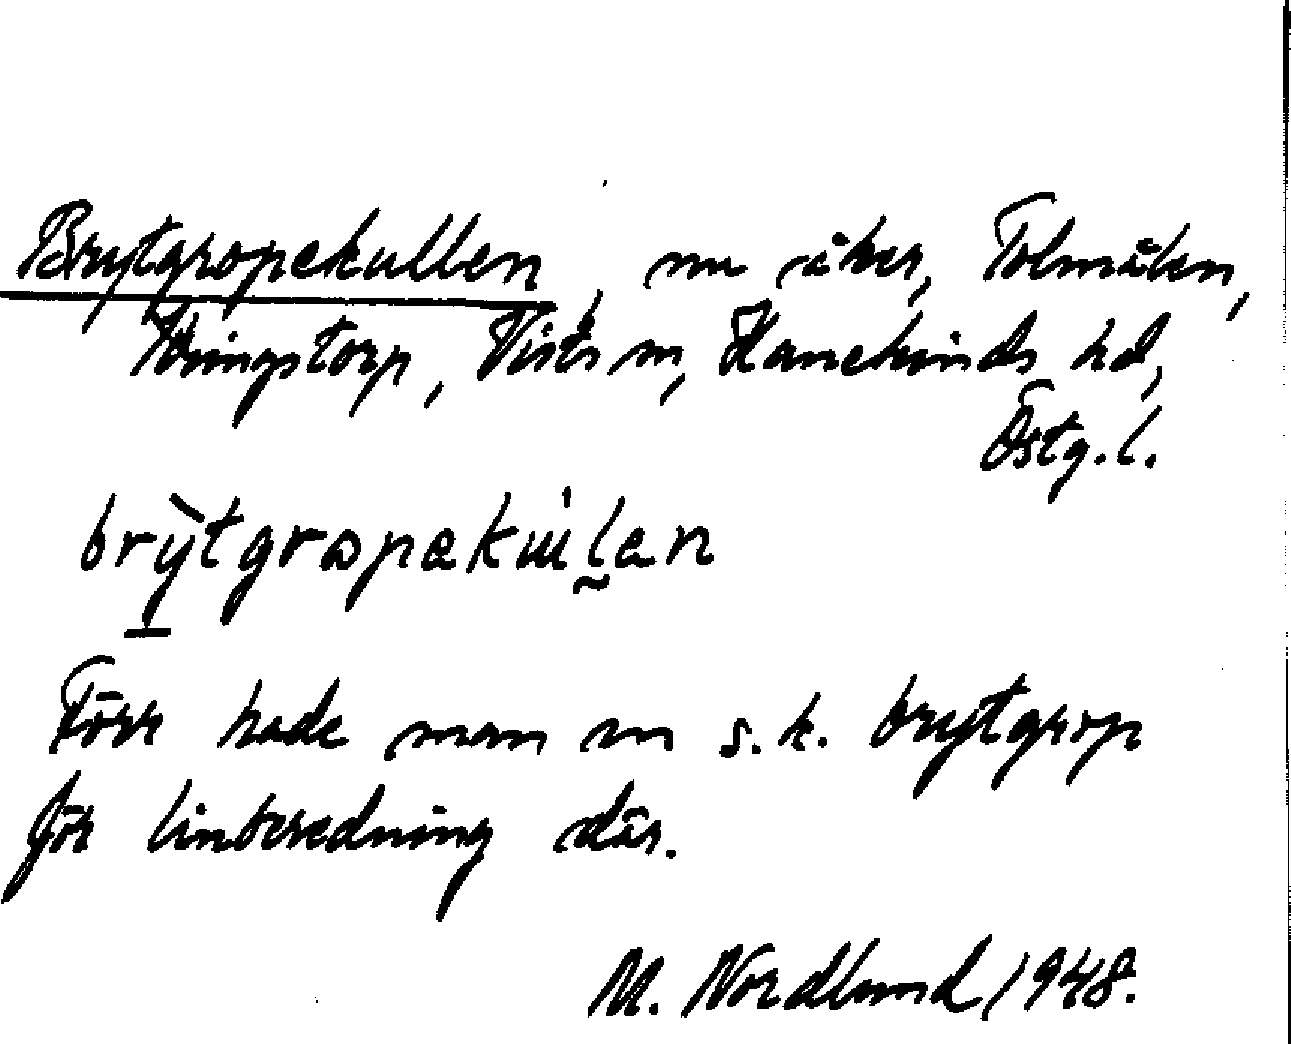 Brytgropekullen, nu åker, Tolmålen,
Wringstorp, Vists sn, Hanekinds hd,
Östg. l.
brỳtgrɷpekɯ̀l̰en
Förr hade man en s.k. brytgrop
för linberedning där.
M. Nordlund 1948.